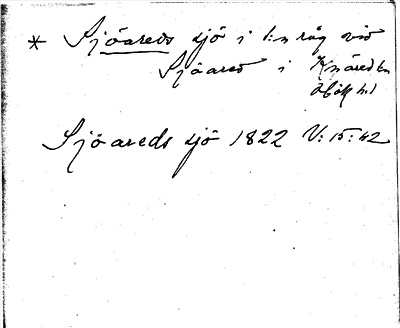 * Sjöareds sjö i l:n råg vid
Sjöared i Knäred sn
Höks hd
Sjöareds sjö 1822 V: 15: 42